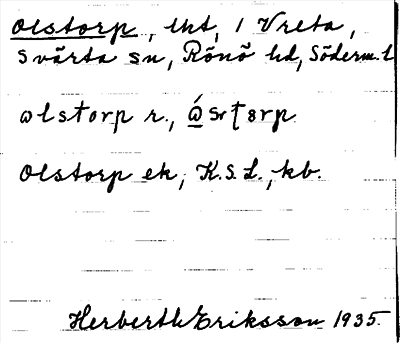 Olstorp, lht, 1 Vreta,
Svärta sn, Rönö hd, Söderm. l
olstorp r.,
Olstorp ek, K.S.L., kb.
Herberth Eriksson 1935.